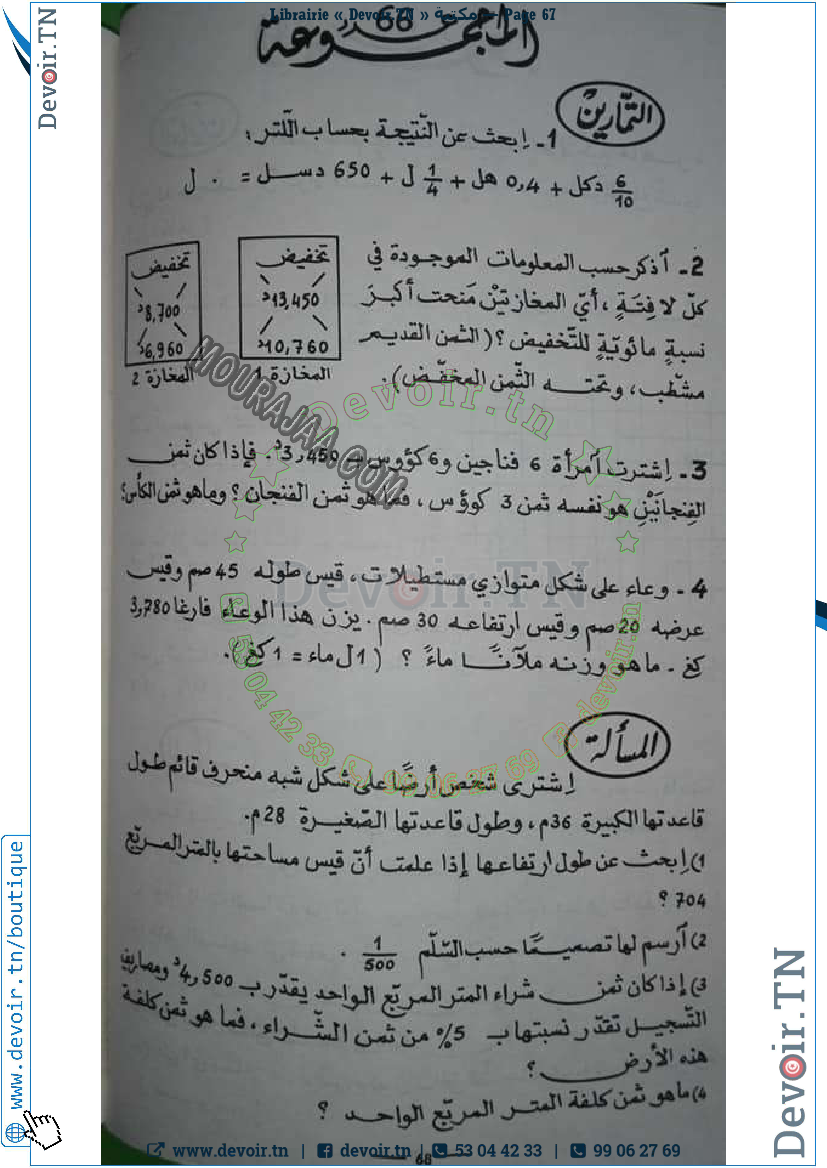 Librairie « Devoir.TN » مكتبة Page 67
Devoir.TN
المجموعة عدد 68
التمارين
1- إبحث عن النّتيجة بحساب اللّتر :
6/10 دكل + 0,4 هل + 1/4 ل + 650 دسل = . ل
2- أذكر حسب المعلومات الموجودة في
كلّ لافِتَةٍ ، أيّ المغازتيْن مَنحت أكبرَ
نسبةٍ مائويّةٍ للتّخفيض ؟ ( الثمن القديم
مشطّب ، وتحته الثّمن المخفّض ) .
تخفيض
13,450د
10,760د
المغازة 1
تخفيض
8,700د
6,960د
المغازة 2
MOURAJAA.COM
3- إشترت آمرأة 6 فناجين و6 كؤوس بـ 3,450د . فإذا كان ثمن
الفِنجانَيْنِ هو نفسه ثمن 3 كوؤس ، فما هو ثمن الفنجان ؟ وما هو ثمن الكأس؟
4- وعاء على شكل متوازي مستطيلات ، قيس طوله 45 صم وقيس
عرضه 20 صم وقيس ارتفاعه 30 صم . يزن هذا الوعاء فارغا 3,780
كغ - ما هو وزنه ملآنًا ماءً ؟ ( 1ل ماء = 1 كغ ) .
Devoir.TN
devoir.tn
53 04 42 33
99 06 27 69
devoir.tn
المسألة
إشترى شخص أرضًا على شكل شبه منحرف قائم طول
قاعدتها الكبيرة 36م ، وطول قاعدتها الصّغيرة 28م.
1) إبحث عن طول ارتفاعها إذا علمت أنّ قيس مساحتها بالمتر المربّع
704 ؟
2) أرسم لها تصميمًا حسب السّلّم 1/500 .
3) إذا كان ثمن شراء المتر المربّع الواحد يقدّر ب 4,500د ومصاريف
التّسجيل تقدّر نسبتها ب 5% من ثمن الشّراء ، فما هو ثمن كلفة
هذه الأرض ؟
4) ما هو ثمن كلفة المتر المربّع الواحد ؟
68
www.devoir.tn | devoir.tn | 53 04 42 33 | 99 06 27 69
www.devoir.tn/boutique
Devoir.TN